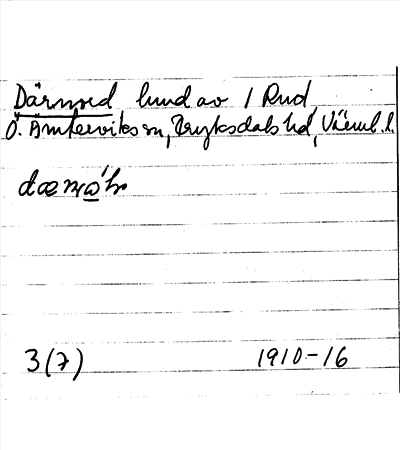 Därnord lund av 1 Rud,
Ö. Ämterviks sn, Fryksdals hd, Värml. l.
3(7) 1910-16